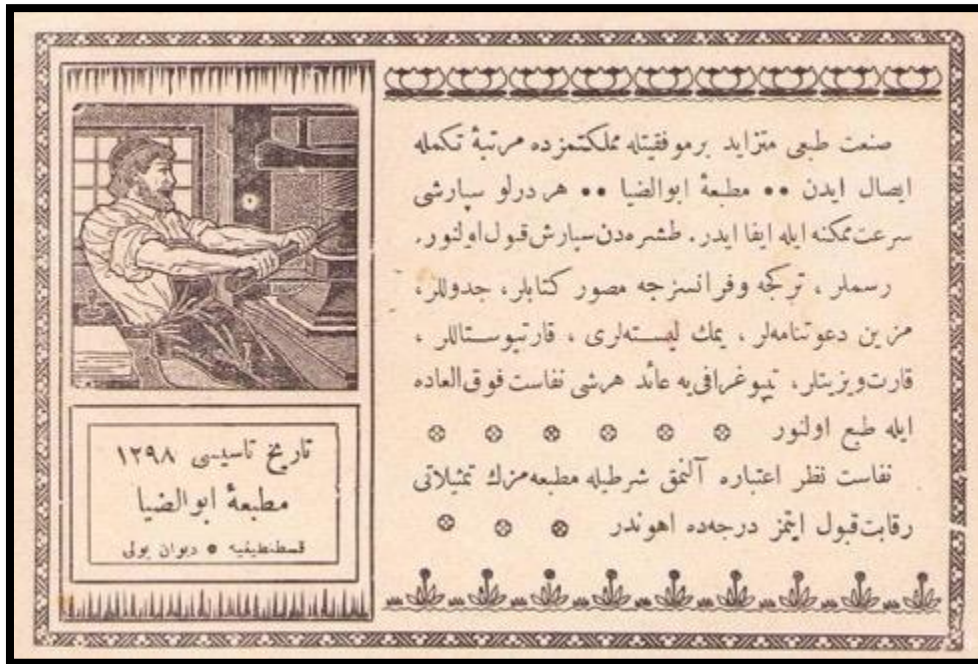 صنعت طبعی متزاید برموفقیتله مملکتمزده مرتبهٔ تکمله
ایصال ایدن •• مطبعهٔ ابوالضیا •• هر درلو سپارشی
سرعت ممکنه ایله ایفا ایدر. طشره‌دن سپارش قبول اولنور.
رسملر ، ترکجه وفرانسزجه مصور کتابلر، جدوللر،
مزین دعوتنامه‌لر ، یمك لیسته‌لری ، قارتپوستاللر ،
قارت‌ویزیتلر، تیپوغرافی‌یه عائد هرشی نفاست فوق‌العاده
ایله طبع اولنور
نفاست نظر اعتباره آلنمق شرطیله مطبعه‌مزك تمثیلاتی
رقابت‌قبول ایتمز درجه‌ده اهوندر
تاریخ تاسیسی ١٢٩٨
مطبعهٔ ابوالضیا
قسطنطینیه • دیوان یولی